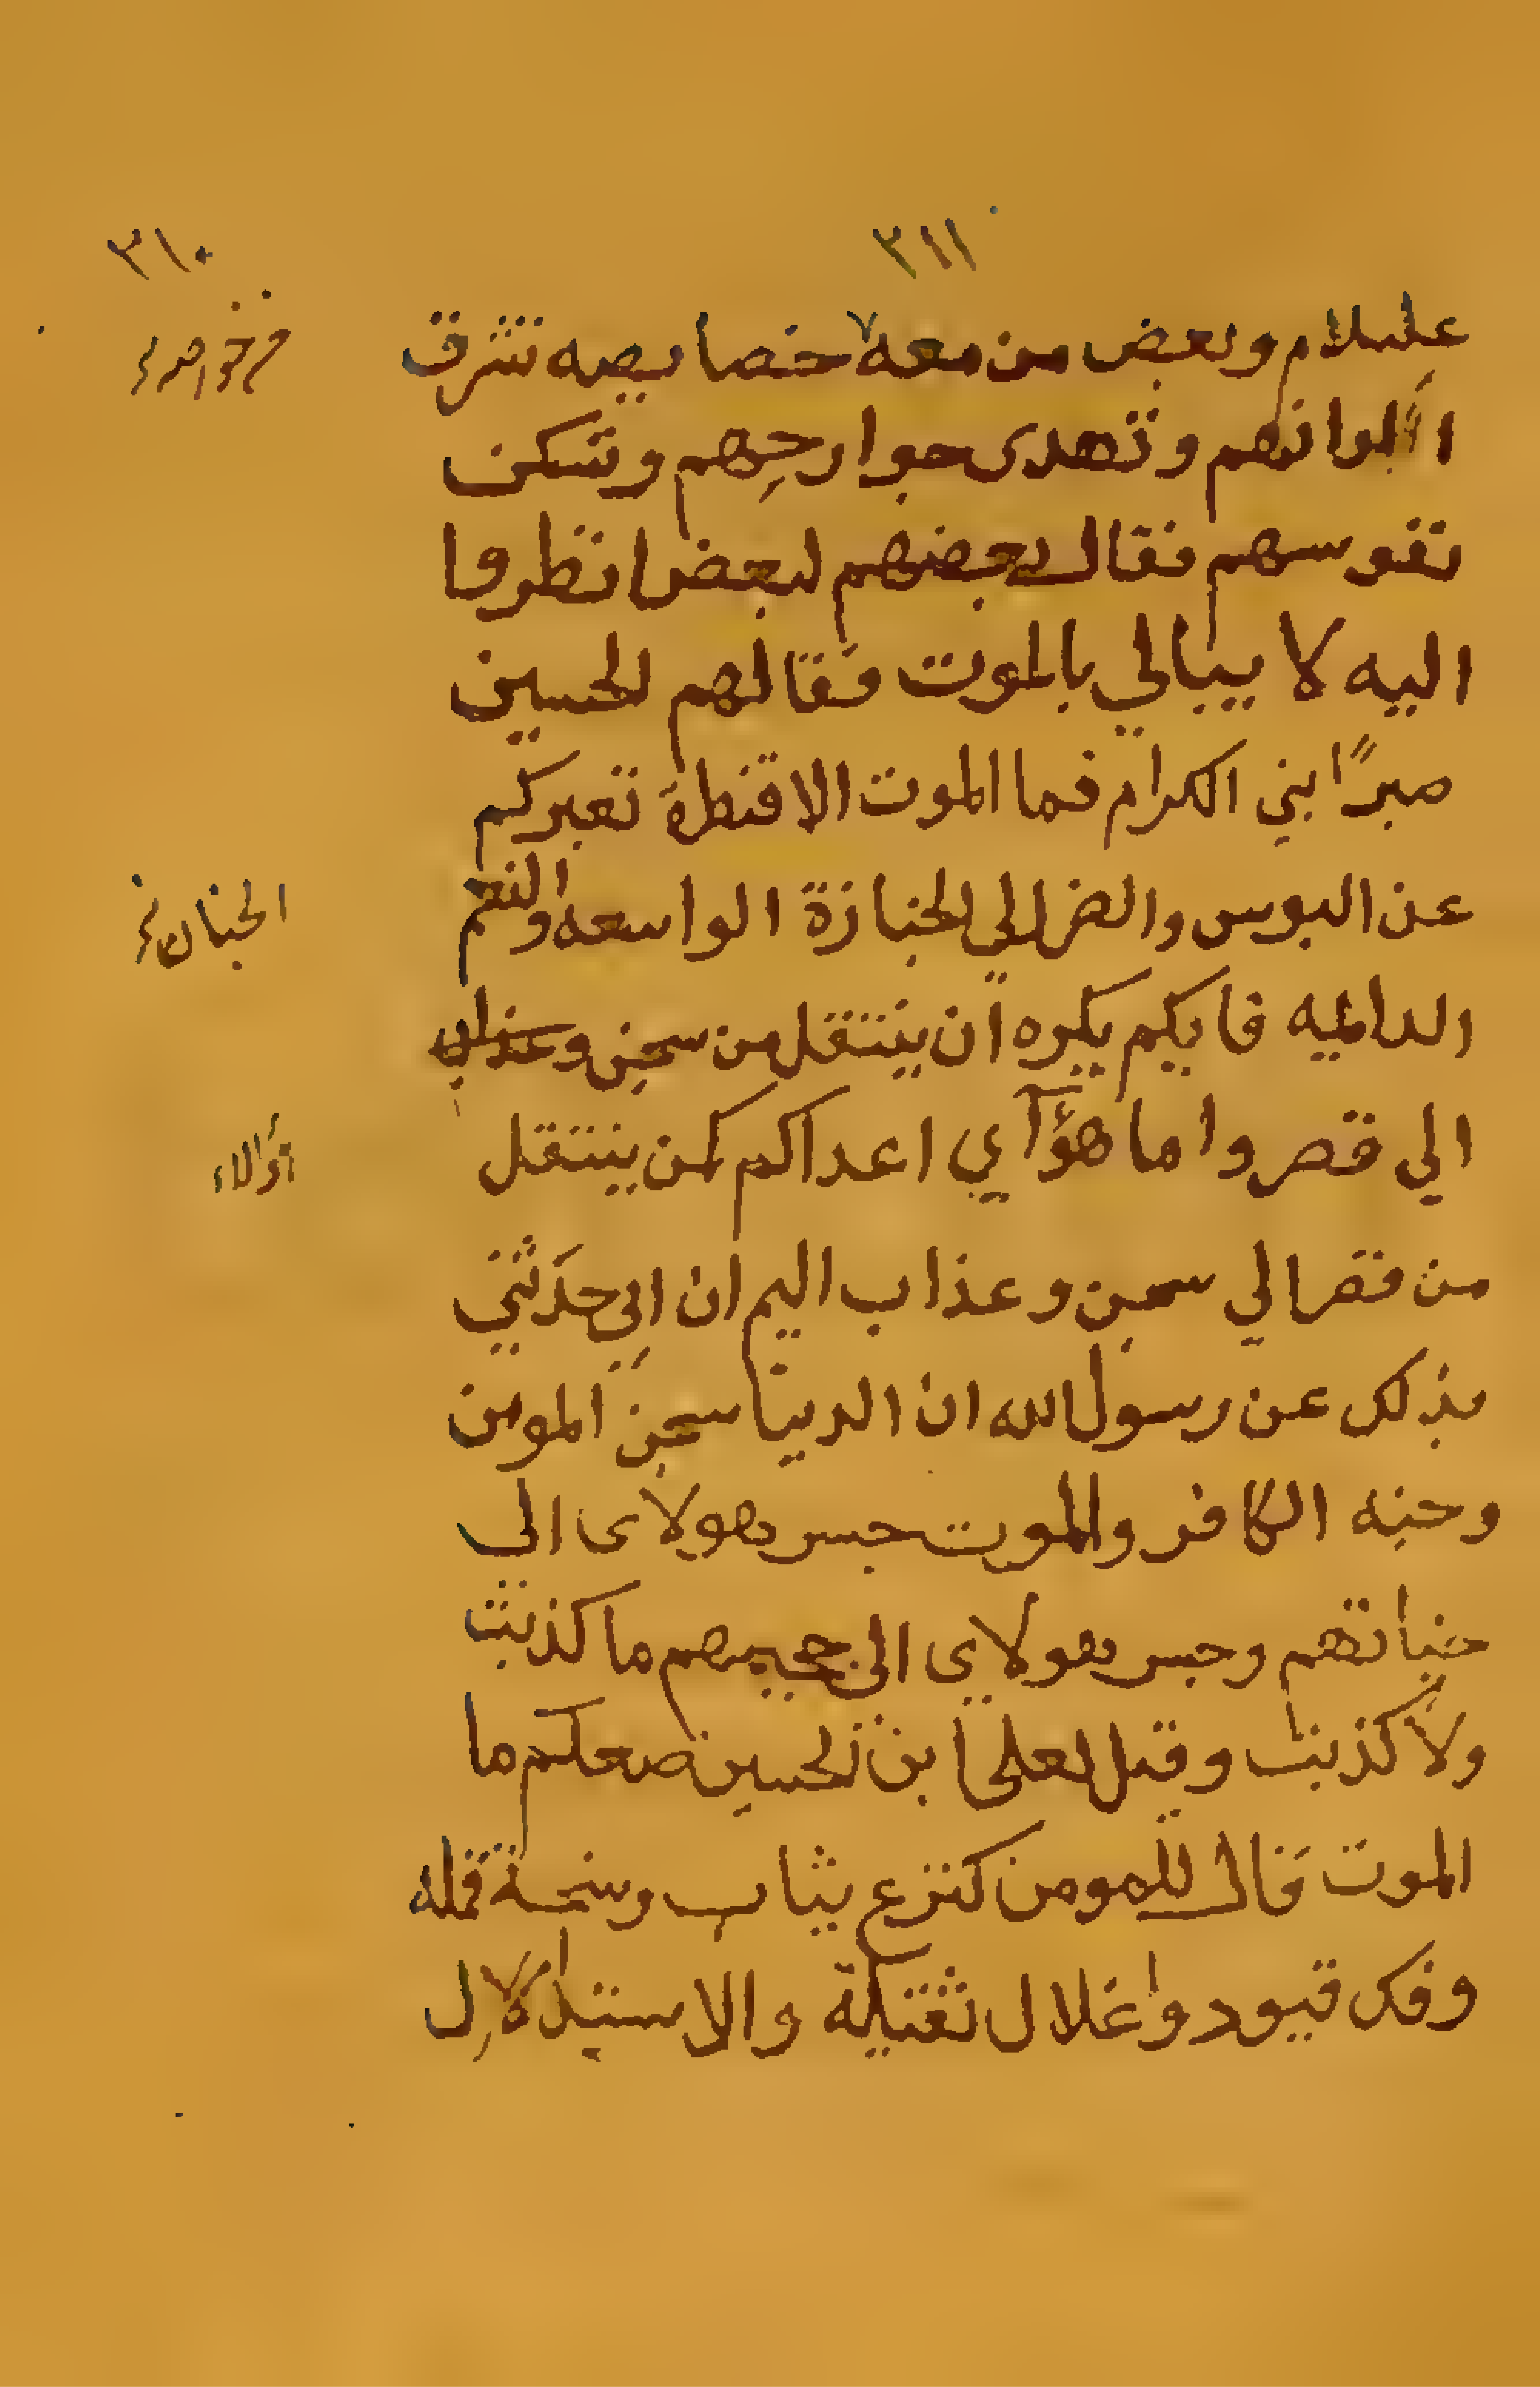 ٣١١
٣١٠
علیلام وبعض من معه خصايصه تشرق
الوانهم وتهدى جوارحهم وتسكن
نفوسهم فقال بعضهم لبعض انظروا
اليه لا يبالي بالموت فقالهم الحسين
صبرًا بني الكرام فما الموت الا قنطرة تعبركم
عن البوس والضر الي الجنازة الواسعه والنعم
الجنان
الدايمه فايكم يكره ان ينتقل من سجن وعذاب
الي قصر واما هؤآي اعداكم كمن ينتقل
من قصر الي سجن وعذاب اليم ان ابي حدثني
بذلك عن رسول الله ان الدينا سجن المومن
وجنه الكافر والموت جسر هولاى الى
جناتهم وجسر هولاي الى جحيمهم ما كذبت
ولا كذبت وقيل لعلى ابن الحسين صعلكم ما
الموت قال للمومن كنزع ثياب وسخة قمله
وفك قيود واغلال ثقتيلة والاستبدلال